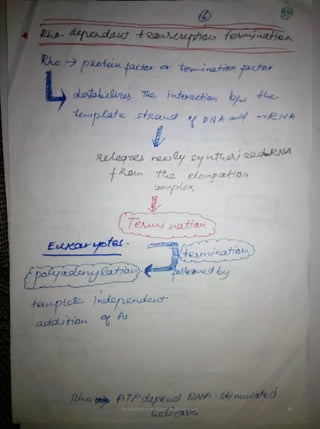 6
* Rho-dependant transcription termination
Rho → protein factor or termination factor
destabilizes the interaction b/w the
template strand of DNA and mRNA
releases newly synthesized RNA
from the elongation
complex
Termination
Eukaryotes.
termination
polyadenylation. followed by
template independent
addition of As
Rho → ATP depend RNA stimulated
helicase